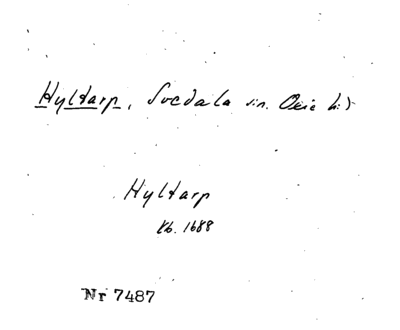 Hyltarp, Svedala sn. Oxie hd
Hyltarp
Kb. 1688
Nr 7487